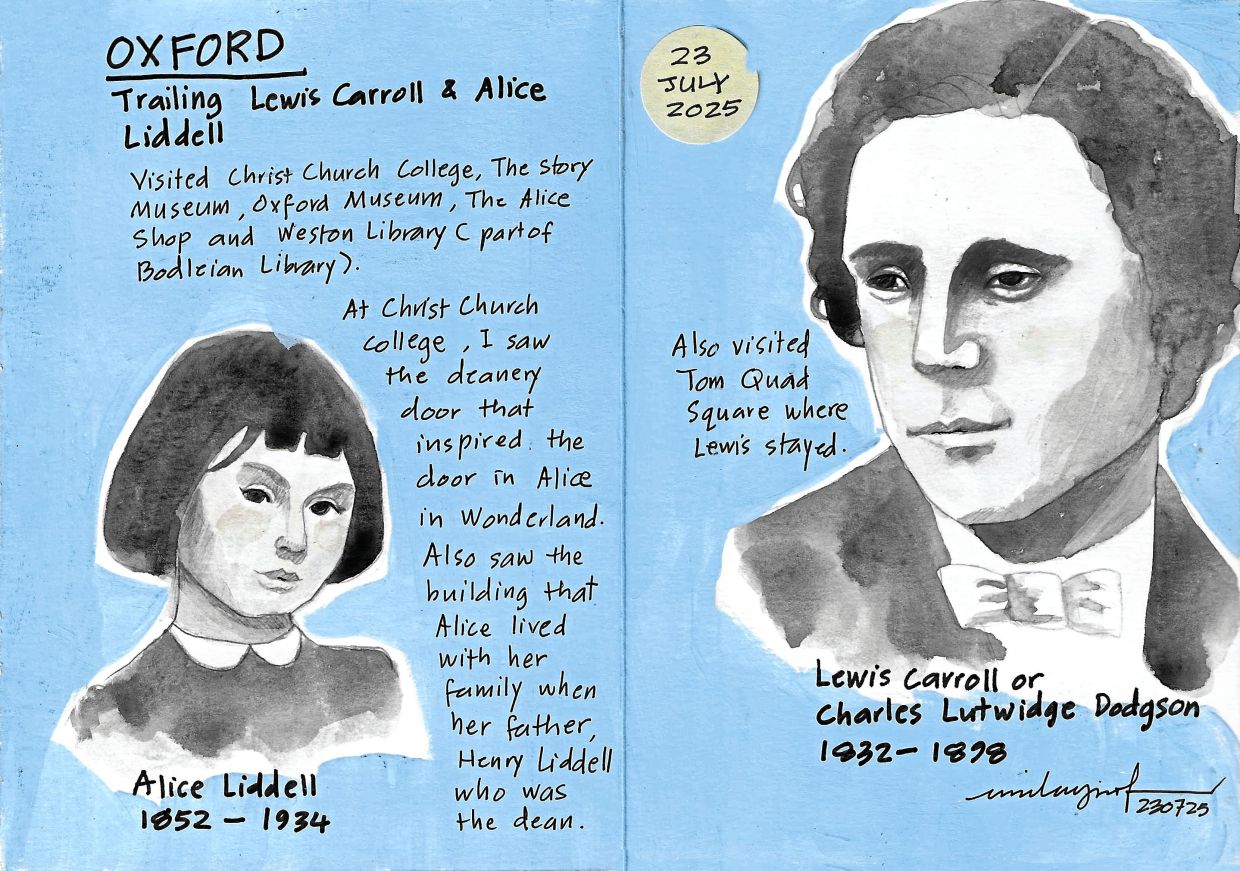 OXFORD
Trailing Lewis Carroll & Alice
Liddell
Visited Christ Church College, The Story
Museum, Oxford Museum, The Alice
Shop and Weston Library ( part of
Bodleian Library).
At Christ Church
college, I saw
the deanery
door that
inspired the
door in Alice
in Wonderland.
Also saw the
building that
Alice lived
with her
family when
her father,
Henry Liddell
who was
the dean.
Alice Liddell
1852 - 1934
23
JULY
2025
Also visited
Tom Quad
Square where
Lewis stayed.
Lewis Carroll or
Charles Lutwidge Dodgson
1832 - 1898
230725